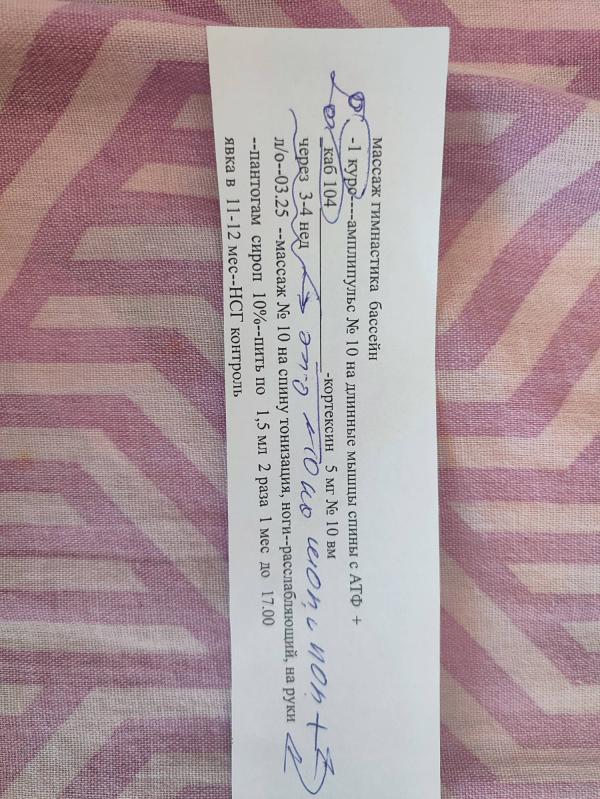 массаж гимнастика бассейн
-1 курс----амплипульс № 10 на длинные мышцы спины с АТФ +
каб 104 -кортексин 5 мг № 10 вм
через 3-4 нед
л/о--03.25 --массаж № 10 на спину тонизация, ноги--расслабляющий, на руки
--пантогам сироп 10%--пить по 1,5 мл 2 раза 1 мес до 17.00
явка в 11-12 мес--НСГ контроль